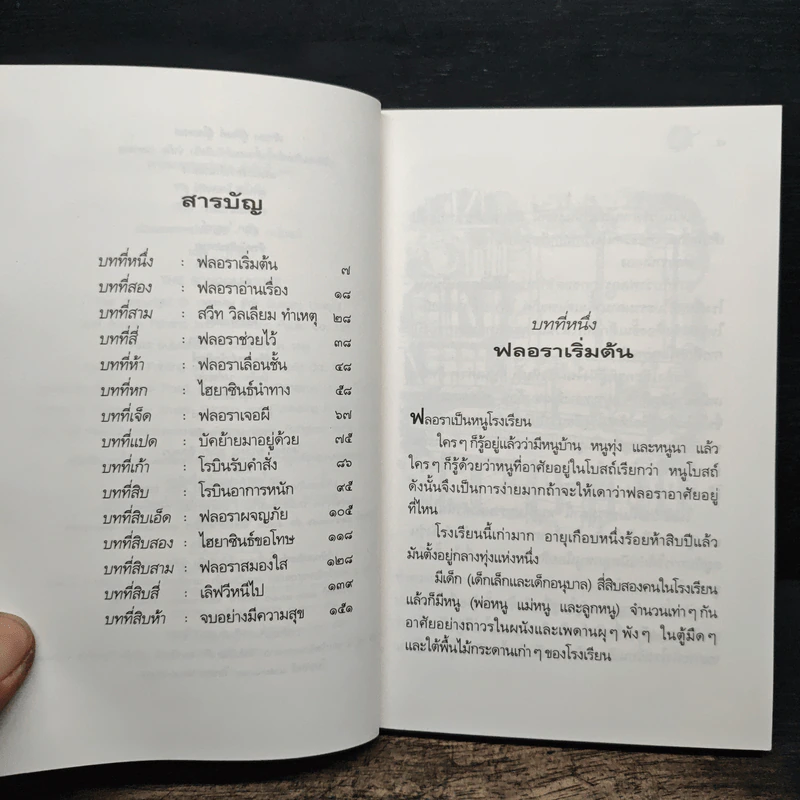 สารบัญ
บทที่หนึ่ง : ฟลอราเริ่มต้น ๗
บทที่สอง : ฟลอราอ่านเรื่อง ๑๘
บทที่สาม : สวีท วิลเลียม ทำเหตุ ๒๘
บทที่สี่ : ฟลอราช่วยไว้ ๓๘
บทที่ห้า : ฟลอราเลื่อนชั้น ๔๘
บทที่หก : ไฮยาซินธ์นำทาง ๕๘
บทที่เจ็ด : ฟลอราเจอผี ๖๗
บทที่แปด : บัคย้ายมาอยู่ด้วย ๗๕
บทที่เก้า : โรบินรับคำสั่ง ๘๖
บทที่สิบ : โรบินอาการหนัก ๙๕
บทที่สิบเอ็ด : ฟลอราผจญภัย ๑๐๕
บทที่สิบสอง : ไฮยาซินธ์ขอโทษ ๑๑๘
บทที่สิบสาม : ฟลอราสมองใส ๑๒๘
บทที่สิบสี่ : เลิฟวีหนีไป ๑๓๙
บทที่สิบห้า : จบอย่างมีความสุข ๑๕๑
บทที่หนึ่ง
ฟลอราเริ่มต้น
ฟลอราเป็นหนูโรงเรียน
ใครๆ ก็รู้อยู่แล้วว่ามีหนูบ้าน หนูทุ่ง และหนูนา แล้ว
ใครๆ ก็รู้ด้วยว่าหนูที่อาศัยอยู่ในโบสถ์เรียกว่า หนูโบสถ์
ดังนั้นจึงเป็นการง่ายมากถ้าจะให้เดาว่าฟลอราอาศัยอยู่
ที่ไหน
โรงเรียนนี้เก่ามาก อายุเกือบหนึ่งร้อยห้าสิบปีแล้ว
มันตั้งอยู่กลางทุ่งแห่งหนึ่ง
มีเด็ก (เด็กเล็กและเด็กอนุบาล) สี่สิบสองคนในโรงเรียน
แล้วก็มีหนู (พ่อหนู แม่หนู และลูกหนู) จำนวนเท่าๆ กัน
อาศัยอย่างถาวรในผนังและเพดานผุๆ พังๆ ในตู้มืดๆ
และใต้พื้นไม้กระดานเก่าๆ ของโรงเรียน